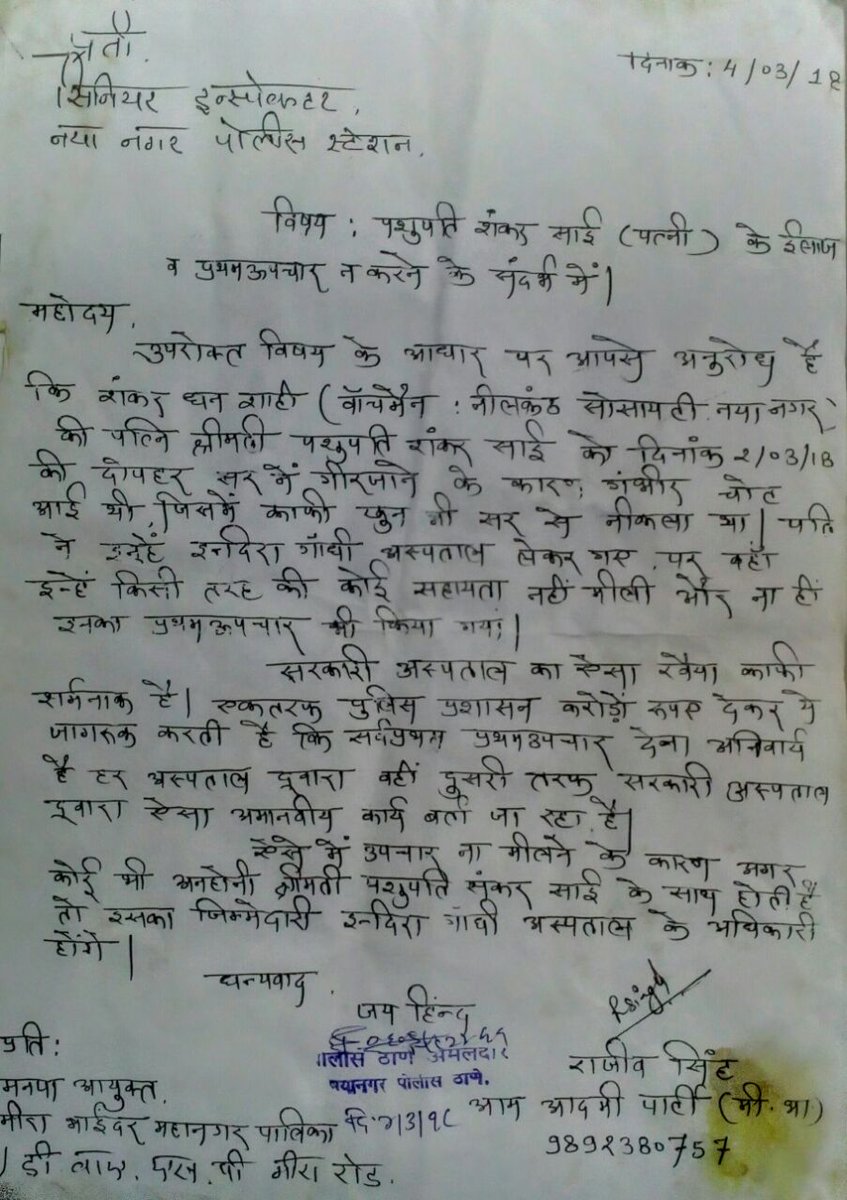 प्रती,
दिनांक: 4/03/18
सिनियर इन्स्पेक्टर,
नया नगर पोलीस स्टेशन.
विषय : पशुपति शंकर साई (पत्नी) के ईलाज
व प्रथमऊपचार न करने के संदर्भ में|
महोदय,
उपरोक्त विषय के आधार पर आपसे अनुरोध है
कि शंकर धन शाही (वॉचमैन : नीलकंठ सोसायटी नयानगर)
की पत्नि श्रीमती पशुपति शंकर साई को दिनांक 2/03/18
की दोपहर सर में गीरजाने के कारण गंभीर चोट
आई थी, जिसमें काफी खुन भी सर से नीकला था| पति
ने इन्हें इन्दिरा गाँधी अस्पताल लेकर गए, पर वहाँ
इन्हें किसी तरह की कोई सहायता नहीं मीली और ना हीं
इनका प्रथमऊपचार भी किया गया|
सरकारी अस्पताल का ऐसा रवैया काफी
शर्मनाक है| एकतरफ पुलिस प्रशासन करोड़ों रूपए देकर ये
जागरुक करती है कि सर्वप्रथम प्रथमउपचार देना अनिवार्य
है हर अस्पताल द्वारा वहीं दुसरी तरफ सरकारी अस्पताल
द्वारा ऐसा अमानवीय कार्य बर्ता जा रहा है|
ऐसे में उपचार ना मीलने के कारण अगर
कोई भी अनहोनी श्रीमती पशुपति शंकर साई के साथ होती है
तो इसका जिम्मेदारी इन्दिरा गाँधी अस्पताल के अधिकारी
होंगे|
धन्यवाद.
जय हिन्द
RSingh
प्रति :
पोलीस ठाणे अमलदार
राजीव सिंह
मनपा आयुक्त,
नयानगर पोलीस ठाणे.
आम आदमी पार्टी (मी. भा)
मीरा भाईंदर महानगर पालिका
दि. ४/3/१८
9892380757
डी वाय. एस. पी मीरा रोड.